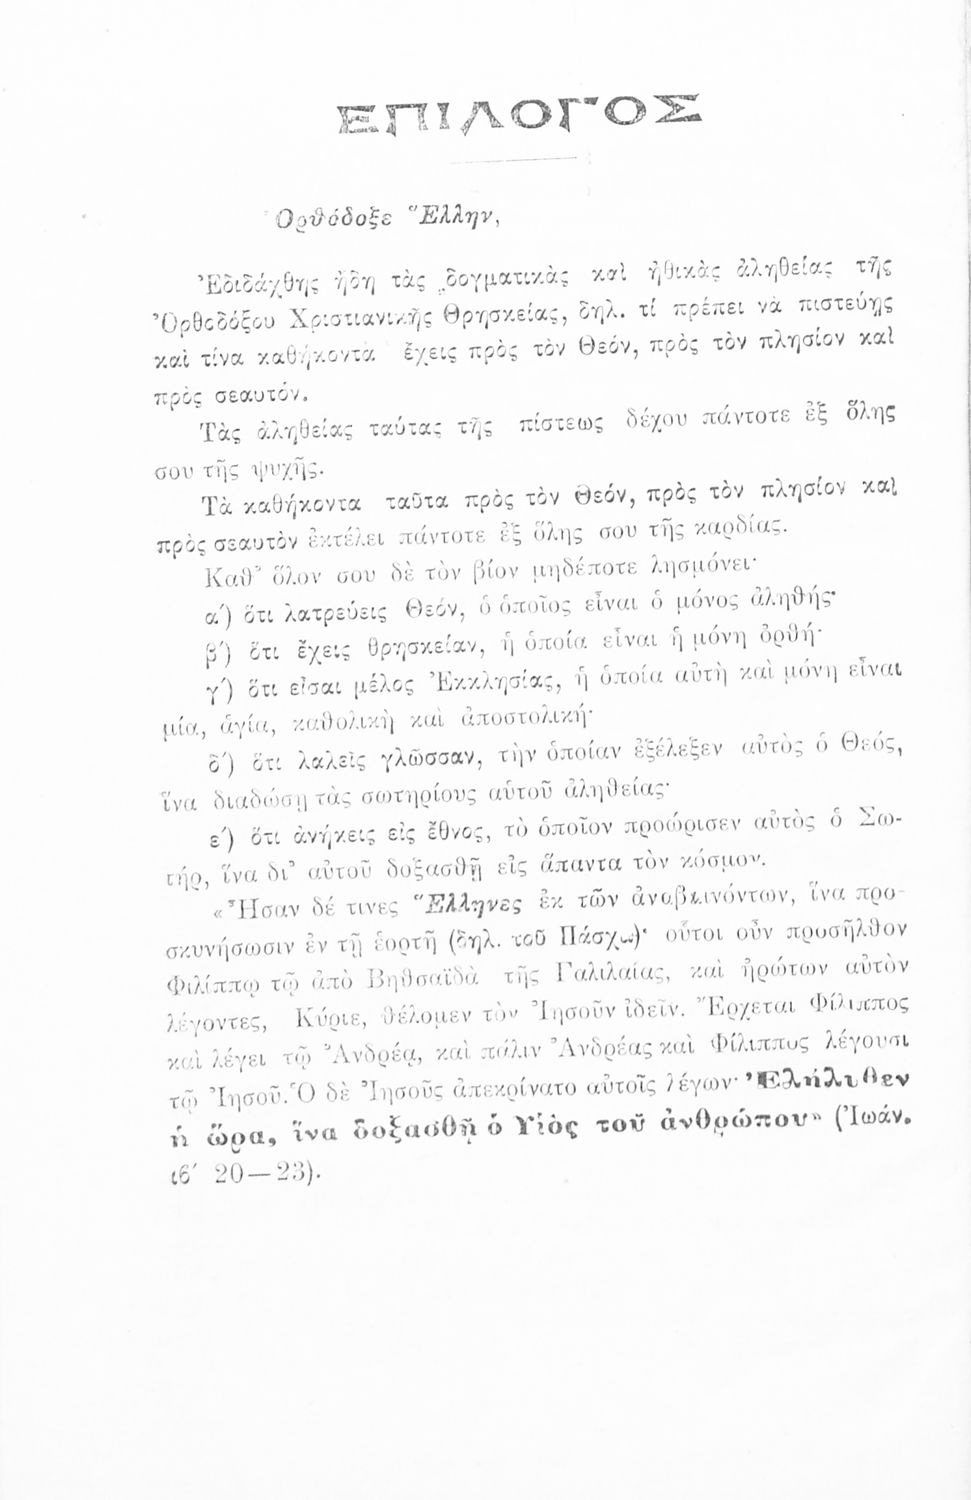 ΕΠΙΛΟΓΟΣ
Ὀρθόδοξε Ἕλλην,
Ἐδιδάχθης ἤδη τὰς δογματικὰς καὶ ἠθικὰς ἀληθείας τῆς
Ὀρθοδόξου Χριστιανικῆς Θρησκείας, δηλ. τί πρέπει νὰ πιστεύῃς
καὶ τίνα καθήκοντα ἔχεις πρὸς τὸν Θεόν, πρὸς τὸν πλησίον καὶ
πρὸς σεαυτόν.
Τὰς ἀληθείας ταύτας τῆς πίστεως δέχου πάντοτε ἐξ ὅλης
σου τῆς ψυχῆς.
Τὰ καθήκοντα ταῦτα πρὸς τὸν Θεόν, πρὸς τὸν πλησίον καὶ
πρὸς σεαυτὸν ἐκτέλει πάντοτε ἐξ ὅλης σου τῆς καρδίας.
Καθ' ὅλον σου δὲ τὸν βίον μηδέποτε λησμόνει·
α΄) ὅτι λατρεύεις Θεόν, ὁ ὁποῖος εἶναι ὁ μόνος ἀληθής·
β΄) ὅτι ἔχεις θρησκείαν, ἡ ὁποία εἶναι ἡ μόνη ὀρθή·
γ΄) ὅτι εἶσαι μέλος Ἐκκλησίας, ἡ ὁποία αὐτὴ καὶ μόνη εἶναι
μία, ἁγία, καθολικὴ καὶ ἀποστολική·
δ΄) ὅτι λαλεῖς γλῶσσαν, τὴν ὁποίαν ἐξέλεξεν αὐτὸς ὁ Θεός,
ἵνα διαδώσῃ τὰς σωτηρίους αὑτοῦ ἀληθείας·
ε΄) ὅτι ἀνήκεις εἰς ἔθνος, τὸ ὁποῖον προώρισεν αὐτὸς ὁ Σω-
τήρ, ἵνα δι' αὐτοῦ δοξασθῇ εἰς ἅπαντα τὸν κόσμον.
«Ἦσαν δέ τινες Ἕλληνες ἐκ τῶν ἀναβαινόντων, ἵνα προ-
σκυνήσωσιν ἐν τῇ ἑορτῇ (δηλ. τοῦ Πάσχα)· οὗτοι οὖν προσῆλθον
Φιλίππῳ τῷ ἀπὸ Βηθσαϊδὰ τῆς Γαλιλαίας, καὶ ἠρώτων αὐτὸν
λέγοντες, Κύριε, θέλομεν τὸν Ἰησοῦν ἰδεῖν. Ἔρχεται Φίλιππος
καὶ λέγει τῷ Ἀνδρέᾳ, καὶ πάλιν Ἀνδρέας καὶ Φίλιππος λέγουσι
τῷ Ἰησοῦ. Ὁ δὲ Ἰησοῦς ἀπεκρίνατο αὐτοῖς λέγων· Ἐλήλυθεν
ἡ ὥρα, ἵνα δοξασθῇ ὁ Υἱὸς τοῦ ἀνθρώπου» (Ἰωάν.
ιβ΄ 20—23).